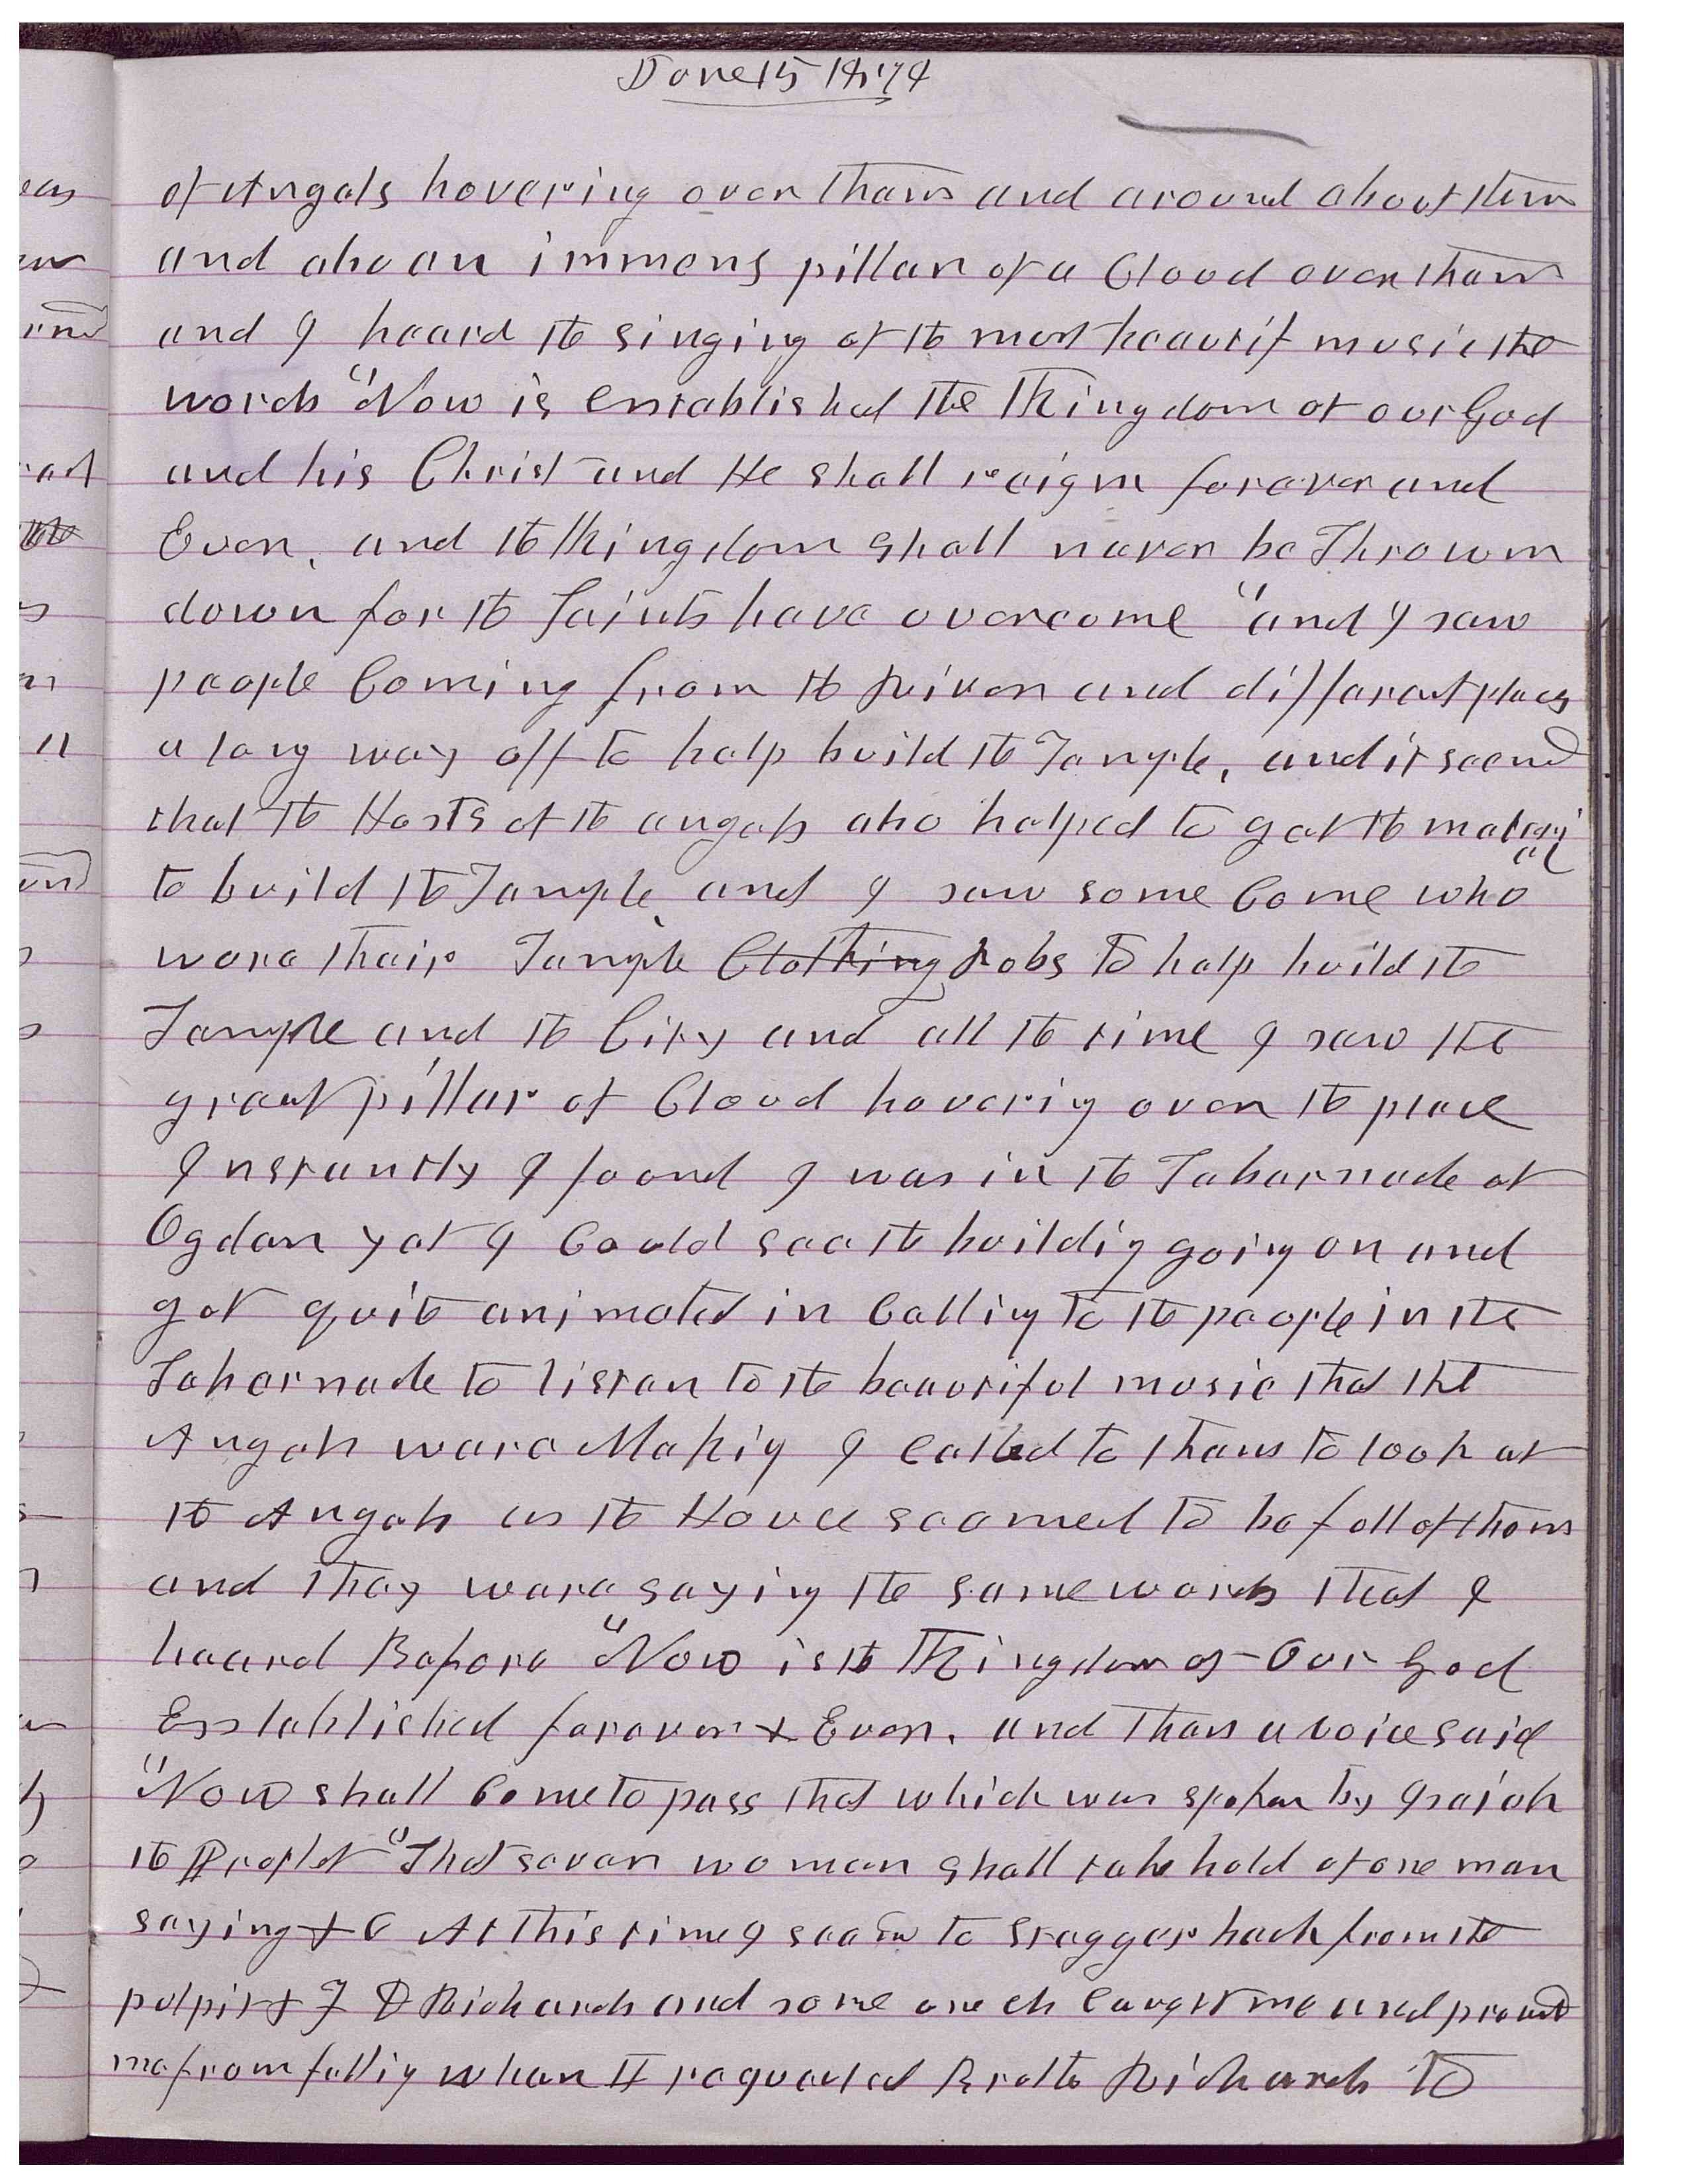 June 15 1878
of Angels hovering over them and around about them
and also an immens pillar of a Cloud over them
and I heard the singing of the most beautif music the
words "Now is esstablished the Kingdom of our God
and his Christ and He shall reign forever and
Ever, and the Kingdom shall never be Thrown
down for the Saints have overcome" and I saw
people Coming from the River and different places
a long way off to help build the Temple, and it seemd
that the Hosts of the angels also helped to get the materi
al
to build the Temple, and I saw some Come who
wore their Temple Clothing Robs to help build the
Temple and the City and all the time I saw the
great pillar of Cloud hoverig over the place
Instantly I found I was in the Tabernacle at
Ogden yet I Could see the buildig goig on and
got quite animated in Callig to the people in the
Tabernacle to listen to the beautiful music that the
Angels were Makig I called to them to look at
the Angels as the House seemed to be full of them
and they were saying the same words that I
heard Before "Now is the Kingdom of Our God
Esstablished forever & Ever. and then a voice said
"Now shall Come to pass that which was spoken by Isaiah
the Prophet "That seven women shall take hold of one man
saying &C At this time I seemd to stagger back from the
pulpit & F D Richards and some one els caught me and prevented
me from fallig when I requested Brothe Richards To